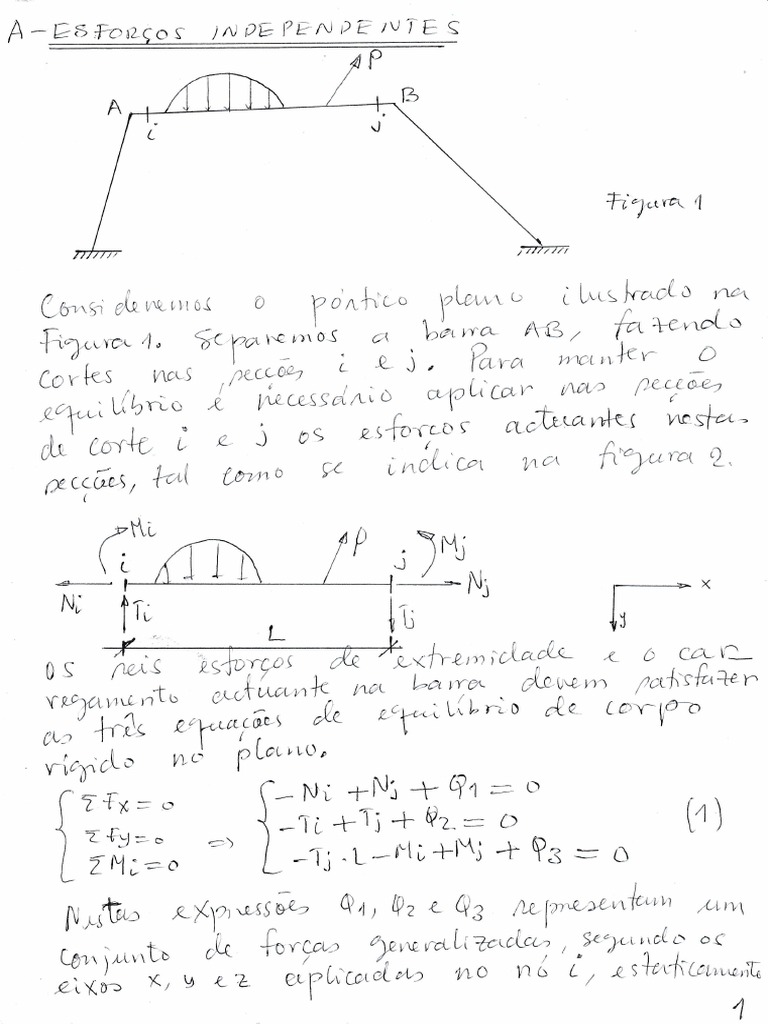 A - ESFORÇOS INDEPENDENTES
P
A
B
i
j
Figura 1
Consideremos o pórtico plano ilustrado na
Figura 1. Separemos a barra AB, fazendo
cortes nas secções i e j. Para manter o
equilíbrio é necessário aplicar nas secções
de corte i e j os esforços actuantes nestas
secções, tal como se indica na figura 2.
Mi
i
P
j
Mj
Ni
Ti
Nj
Tj
x
y
L
os seis esforços de extremidade e o car
regamento actuante na barra devem satisfazer
as três equações de equilíbrio de corpo
rígido no plano.
Σfx = 0
Σfy = 0 =>
ΣMi = 0
-Ni + Nj + Q1 = 0
-Ti + Tj + Q2 = 0 (1)
-Tj . L - Mi + Mj + Q3 = 0
Nestas expressões Q1, Q2 e Q3 representam um
conjunto de forças generalizadas, segundo os
eixos x, y e z aplicadas no nó i, estaticamente
1